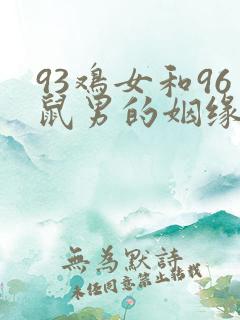 93鸡女和96
鼠男的姻缘
無為默詩
未经同意禁止转载